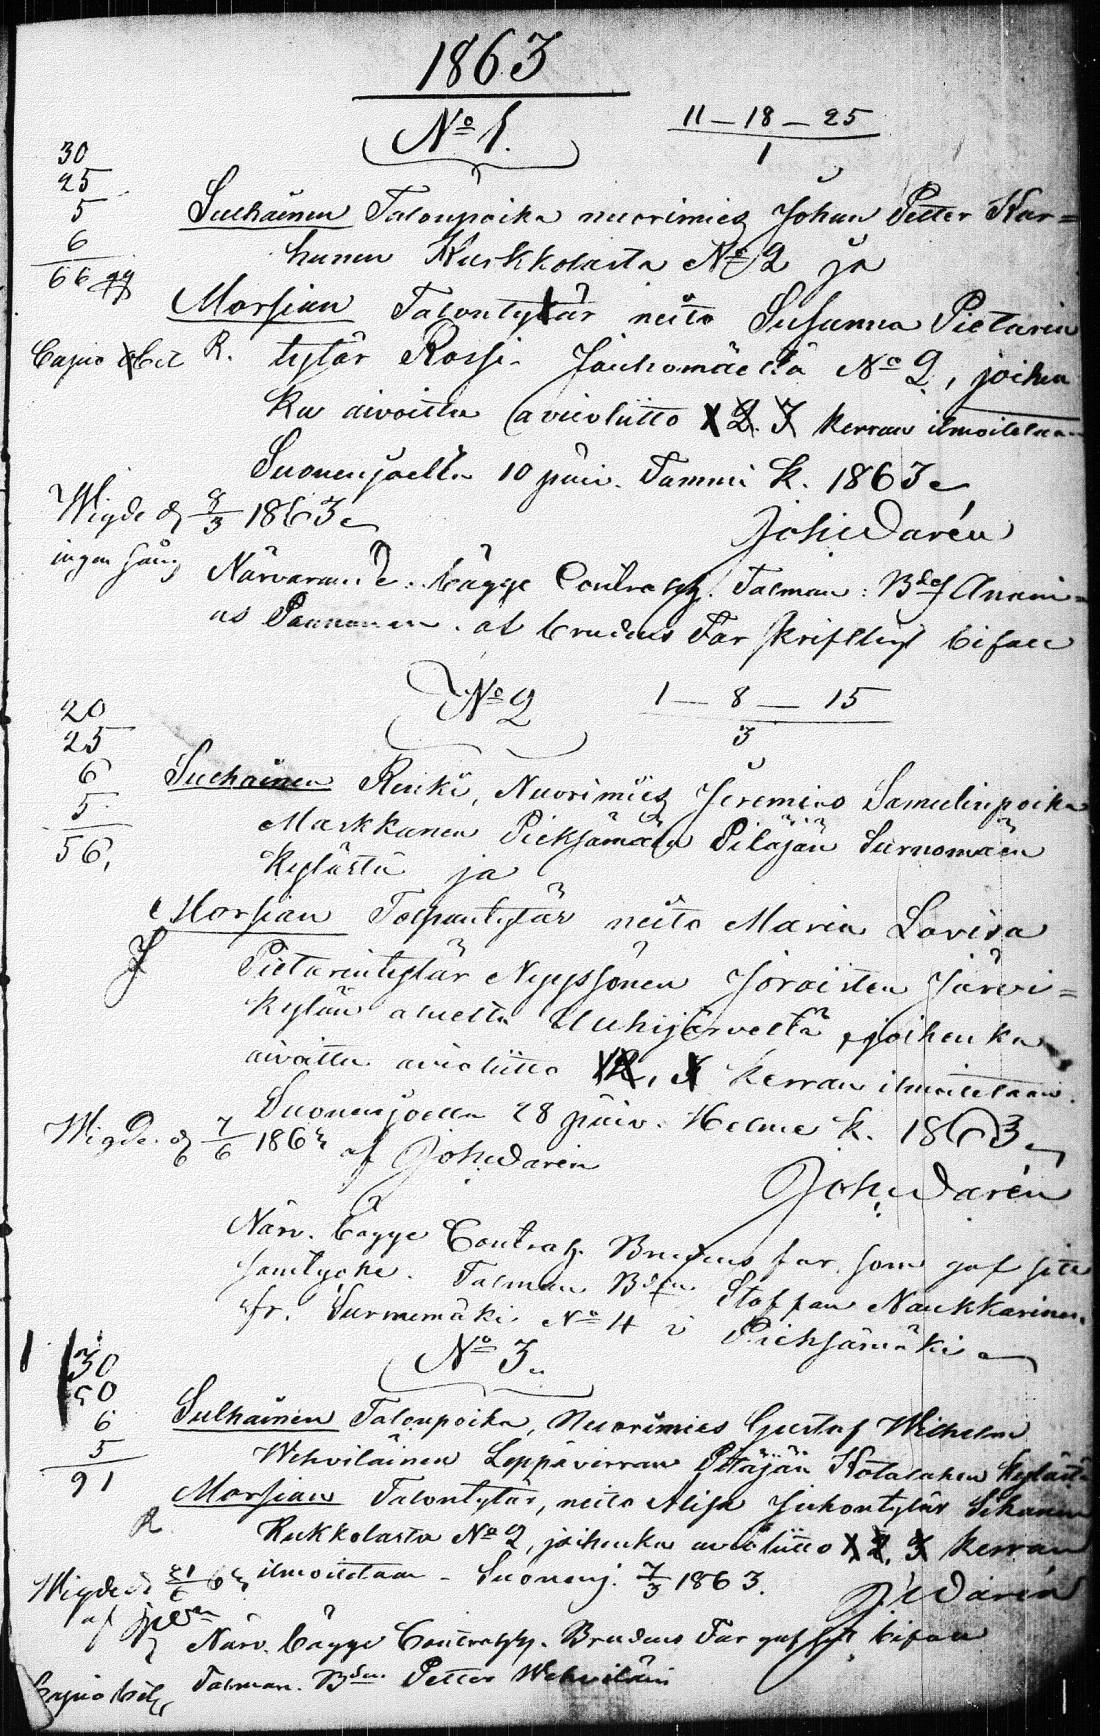 1863
No 1.
11 – 18 – 25
1
30
25
5
6
66
Sulhainen Talonpoika nuorimies Johan Petter Kar=
hunen Kurkkolasta No 2 ja
Morsian Talontytär neito Susanna Pietarin
R. tytär Rossi Jauhomäeltä No 2, joihen
ka aivoittu avioliitto 1 2. 3 kerran ilmoitetaan
Suonenjoella 10 päiv. Tammi k. 1863
Wigde d 8/3 1863
Joh. Warén
ingen
Närvarande. bägge Contrah. Talman: Anani=
as Paananen. af brudens Far skriftligt bifall
No 2
1 – 8 – 15
3
20
25
6
5
56,
Sulhainen Renki, Nuorimies Jeremias Samulinpoika
Markkanen Pieksämään Pitäjän Surnomäen
kylästä ja
Morsian neito Maria Lovisa
Pietarintytär Nyyssönen Joroisten Järvi=
kylän alueelta joihenka
aivoittu avioliitto 1 2, 3 kerran ilmoitetaan.
Suonenjoella 28 päiv. Helme k. 1863
Wigde d 7/6 1863 af Joh. Warén
Joh. Warén
Närv. bägge Contrah. Brudens far, som gaf sitt
samtycke. Talman Bdn Staffan Naukkarinen
fr. Surnumäki No 4 i Pieksämäki
No 3.
30
50
6
5
91
Sulhainen Talonpoika, Nuorimies Gustaf Wilhelm
Wehviläinen Leppävirran Pitäjän Kotalahen kylästä
Morsian Talontytär, neito Juhontytär
R Kukkolasta No 2, joihenka avioliitto 1, 2, 3 kerran
ilmoitetaan – Suonenj. 7/3 1863.
Wigde d 21/6 63
af
J. Warén
Närv. bägge Contrah. Brudens Far gaf bifall
Talman. Bdn. Petter Wehviläin